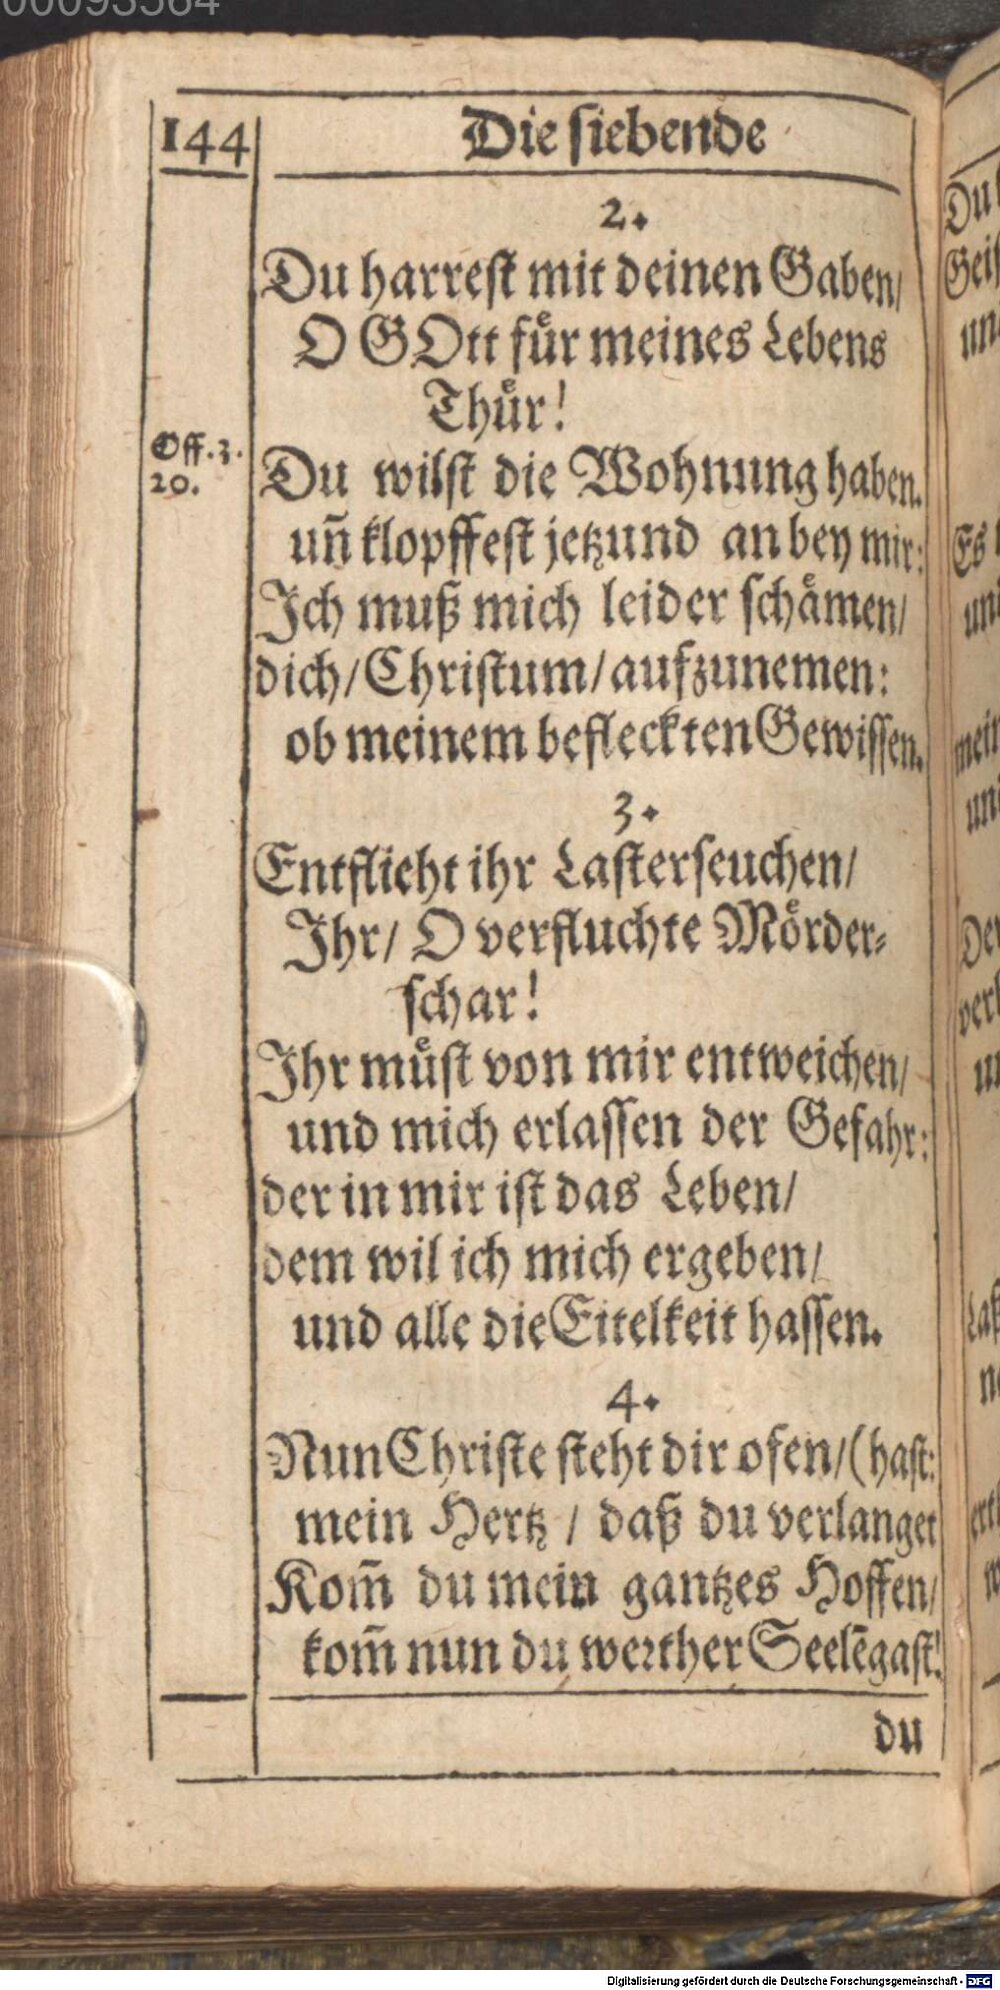 00093564
144
Die siebende
2.
Du harrest mit deinen Gaben/
O GOtt fuͤr meines Lebens
Thuͤr!
Off. 3.
20.
Du wilst die Wohnung haben.
uñ klopffest jetzund an bey mir:
Ich muß mich leider schaͤmen/
dich/ Christum/ aufzunemen:
ob meinem befleckten Gewissen.
3.
Entflieht ihr Lasterseuchen/
Ihr/ O verfluchte Moͤrder-
schar!
Ihr muͤst von mir entweichen/
und mich erlassen der Gefahr:
der in mir ist das Leben/
dem wil ich mich ergeben/
und alle die Eitelkeit hassen.
4.
Nun Christe steht dir ofen/ (hast:
mein Hertz / daß du verlanget
Kom̃ du mein gantzes Hoffen/
kom̃ nun du werther Seelēgast!
du
Digitalisierung gefördert durch die Deutsche Forschungsgemeinschaft - DFG